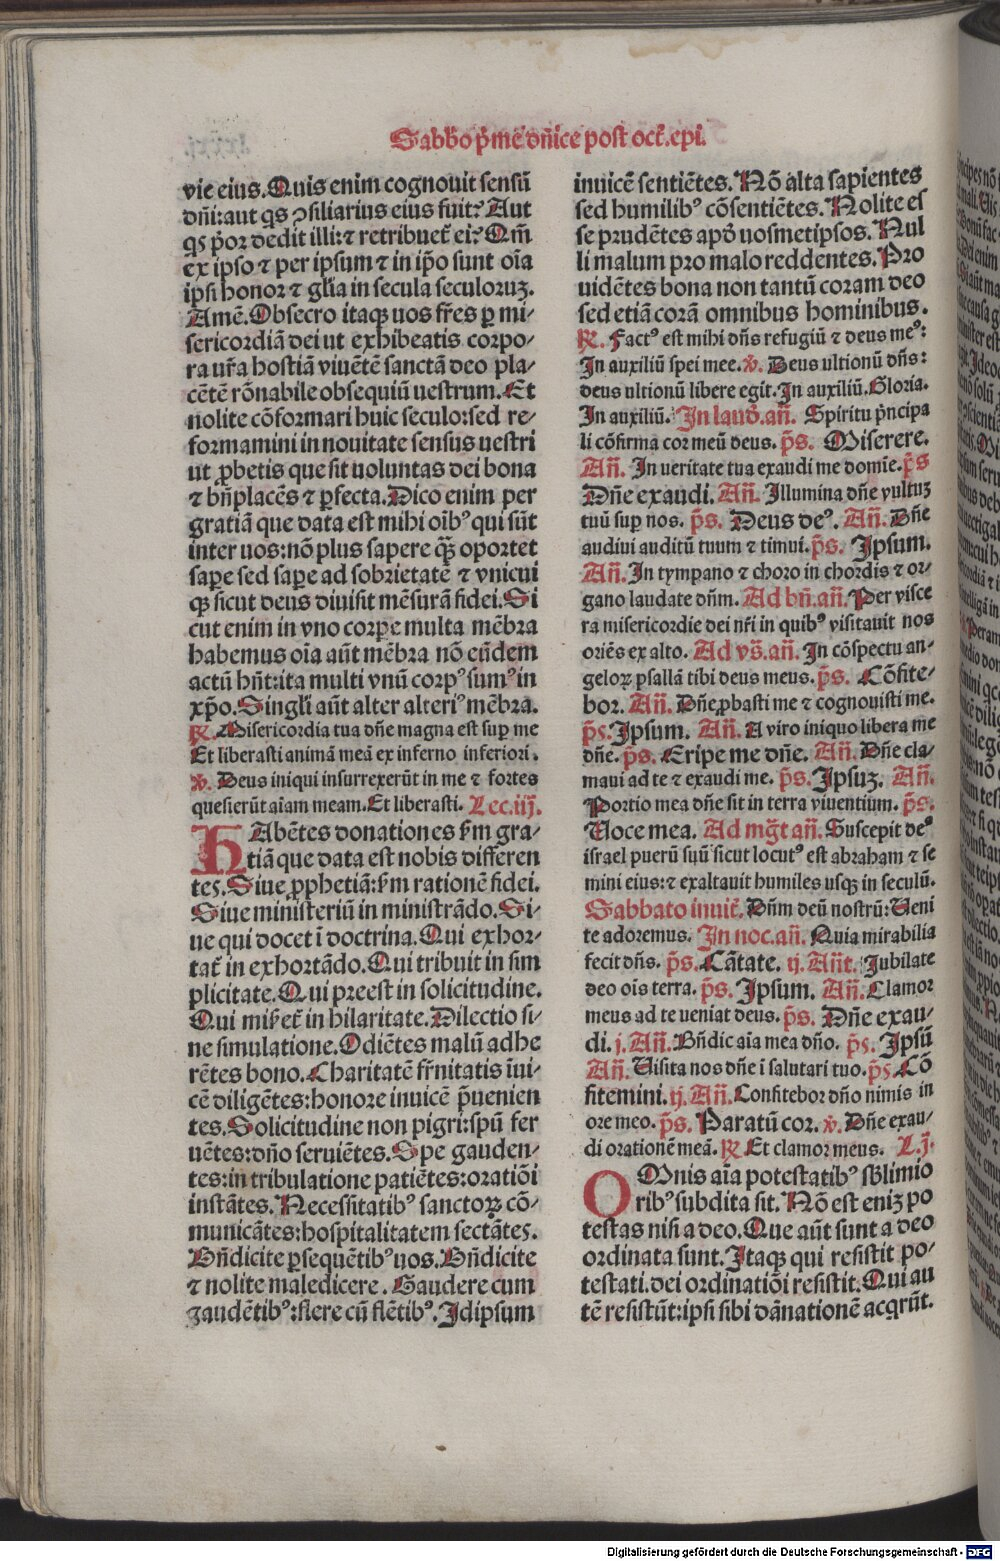 Sabb̄o p̄me dn̄ice post oct̄.epi.
vie eius.Quis enim cognouit sensū
dn̄i:aut qs ꝯsiliarius eius fuit? Aut
qs p̄or dedit illi:⁊ retribuet̄ ei? Qm̄
ex ipso ⁊ per ipsum ⁊ in ip̄o sunt oīa
ipsi honor ⁊ gl̄ia in secula seculoruꝫ.
Amē.Obsecro itaqꝫ uos fr̄es ꝑ mi-
sericordiā dei ut exhibeatis corpo-
ra ur̄a hostiā viuētē sanctā deo pla-
cētē rōnabile obsequiū uestrum.Et
nolite cōformari huic seculo:sed re-
formamini in nouitate sensus uestri
ut ꝓbetis que sit uoluntas dei bona
⁊ bn̄placēs ⁊ ꝑfecta.Dico enim per
gratiā que data est mihi oībꝰ qui sūt
inter uos:nō plus sapere qꝫ̄ oportet
saꝑe sed saꝑe ad sobrietatē ⁊ vnicui
qꝫ sicut deus diuisit mēsurā fidei.Si
cut enim in vno corꝑe multa mēbra
habemus oīa aūt mēbra nō eūdem
actū hn̄t:ita multi vnū corpꝰ sumꝰ in
xp̄o.Singl̄i aūt alter alteriꝰ mēbra.
℞. Misericordia tua dn̄e magna est suꝑ me
Et liberasti animā meā ex inferno inferiori.
℣. Deus iniqui insurrexerūt in me ⁊ fortes
quesierūt aīam meam.Et liberasti. Lec.iij.
HAbētes donationes s̄m gra-
tiā que data est nobis differen
tes.Siue ꝓphetiā:s̄m rationē fidei.
Siue ministeriū in ministrādo.Si-
ue qui docet ī doctrina.Qui exhor-
tat̄ in exhortādo.Qui tribuit in sim
plicitate.Qui preest in solicitudine.
Qui mis̄et̄ in hilaritate.Dilectio si-
ne simulatione.Odiētes malū adhe
rētes bono.Charitatē fr̄nitatis īui-
cē diligētes:honore inuicē p̄uenien
tes.Solicitudine non pigri:sp̄u fer
uētes:dn̄o seruiētes.Spe gauden-
tes:in tribulatione patiētes:oratiōi
instātes.Necessitatibꝰ sanctoꝝ cō-
municātes:hospitalitatem sectātes.
Bn̄dicite ꝑsequētibꝰ uos.Bn̄dicite
⁊ nolite maledicere. Gaudere cum
gaudētibꝰ:flere cū flētibꝰ.Idipsum
inuicē sentiētes.Nō alta sapientes
sed humilibꝰ cōsentiētes.Nolite es
se prudētes apd̄ uosmetipsos.Nul
li malum pro malo reddentes.Pro
uidētes bona non tantū coram deo
sed etiā corā omnibus hominibus.
℞. Factꝰ est mihi dn̄s refugiū ⁊ deus meꝰ:
In auxiliū spei mee.℣. Deus ultionū dn̄s:
deus ultionū libere egit.In auxiliū.Gloria.
In auxiliū. In laud̄.an̄. Spiritu p̄ncipa
li cōfirma cor meū deus. p̄s. Miserere.
An̄. In ueritate tua exaudi me domīe.p̄s
Dn̄e exaudi. An̄. Illumina dn̄e vultuꝫ
tuū suꝑ nos. p̄s. Deus deꝰ. An̄. Dn̄e
audiui auditū tuum ⁊ timui.p̄s. Ipsum.
An̄. In tympano ⁊ choro in chordis ⁊ or-
gano laudate dn̄m. Ad bn̄.an̄. Per visce
ra misericordie dei nr̄i in quibꝰ visitauit nos
oriēs ex alto. Ad vs̄.an̄. In cōspectu an-
geloꝝ psallā tibi deus meus. p̄s. Cōfite-
bor. An̄. Dn̄e ꝓbasti me ⁊ cognouisti me.
p̄s.Ipsum. An̄. A viro iniquo libera me
dn̄e. p̄s. Eripe me dn̄e. An̄. Dn̄e cla-
maui ad te ⁊ exaudi me. p̄s. Ipsuꝫ. An̄.
Portio mea dn̄e sit in terra viuentium. p̄s.
Voce mea. Ad mḡt an̄. Suscepit deꝰ
israel puerū suū sicut locutꝰ est abraham ⁊ se
mini eius:⁊ exaltauit humiles usqꝫ in seculū.
Sabbato inuit̄. Dn̄m deū nostrū:Ueni
te adoremus. In noc.an̄. Quia mirabilia
fecit dn̄s. p̄s. Cātate. ij. An̄t. Jubilate
deo oīs terra. p̄s. Ipsum. An̄. Clamor
meus ad te ueniat deus. p̄s. Dn̄e exau-
di. j. An̄. Bn̄dic aīa mea dn̄o. p̄s. Ipsū
An̄. Uisita nos dn̄e ī salutari tuo. p̄s. Cō
fitemini. ij. An̄. Confitebor dn̄o nimis in
ore meo. p̄s. Paratū cor. ℣. Dn̄e exau-
di orationē meā. ℞ Et clamor meus. L.j.
OMnis aīa potestatibꝰ sb̄limio
ribꝰ subdita sit. Nō est eniꝫ po
testas nisi a deo.Que aūt sunt a deo
ordinata sunt. Itaqꝫ qui resistit po-
testati.dei ordinatiōi resistit.Qui au
tē resistūt:ipsi sibi dānationē acq̄rūt.
Digitalisierung gefördert durch die Deutsche Forschungsgemeinschaft - DFG